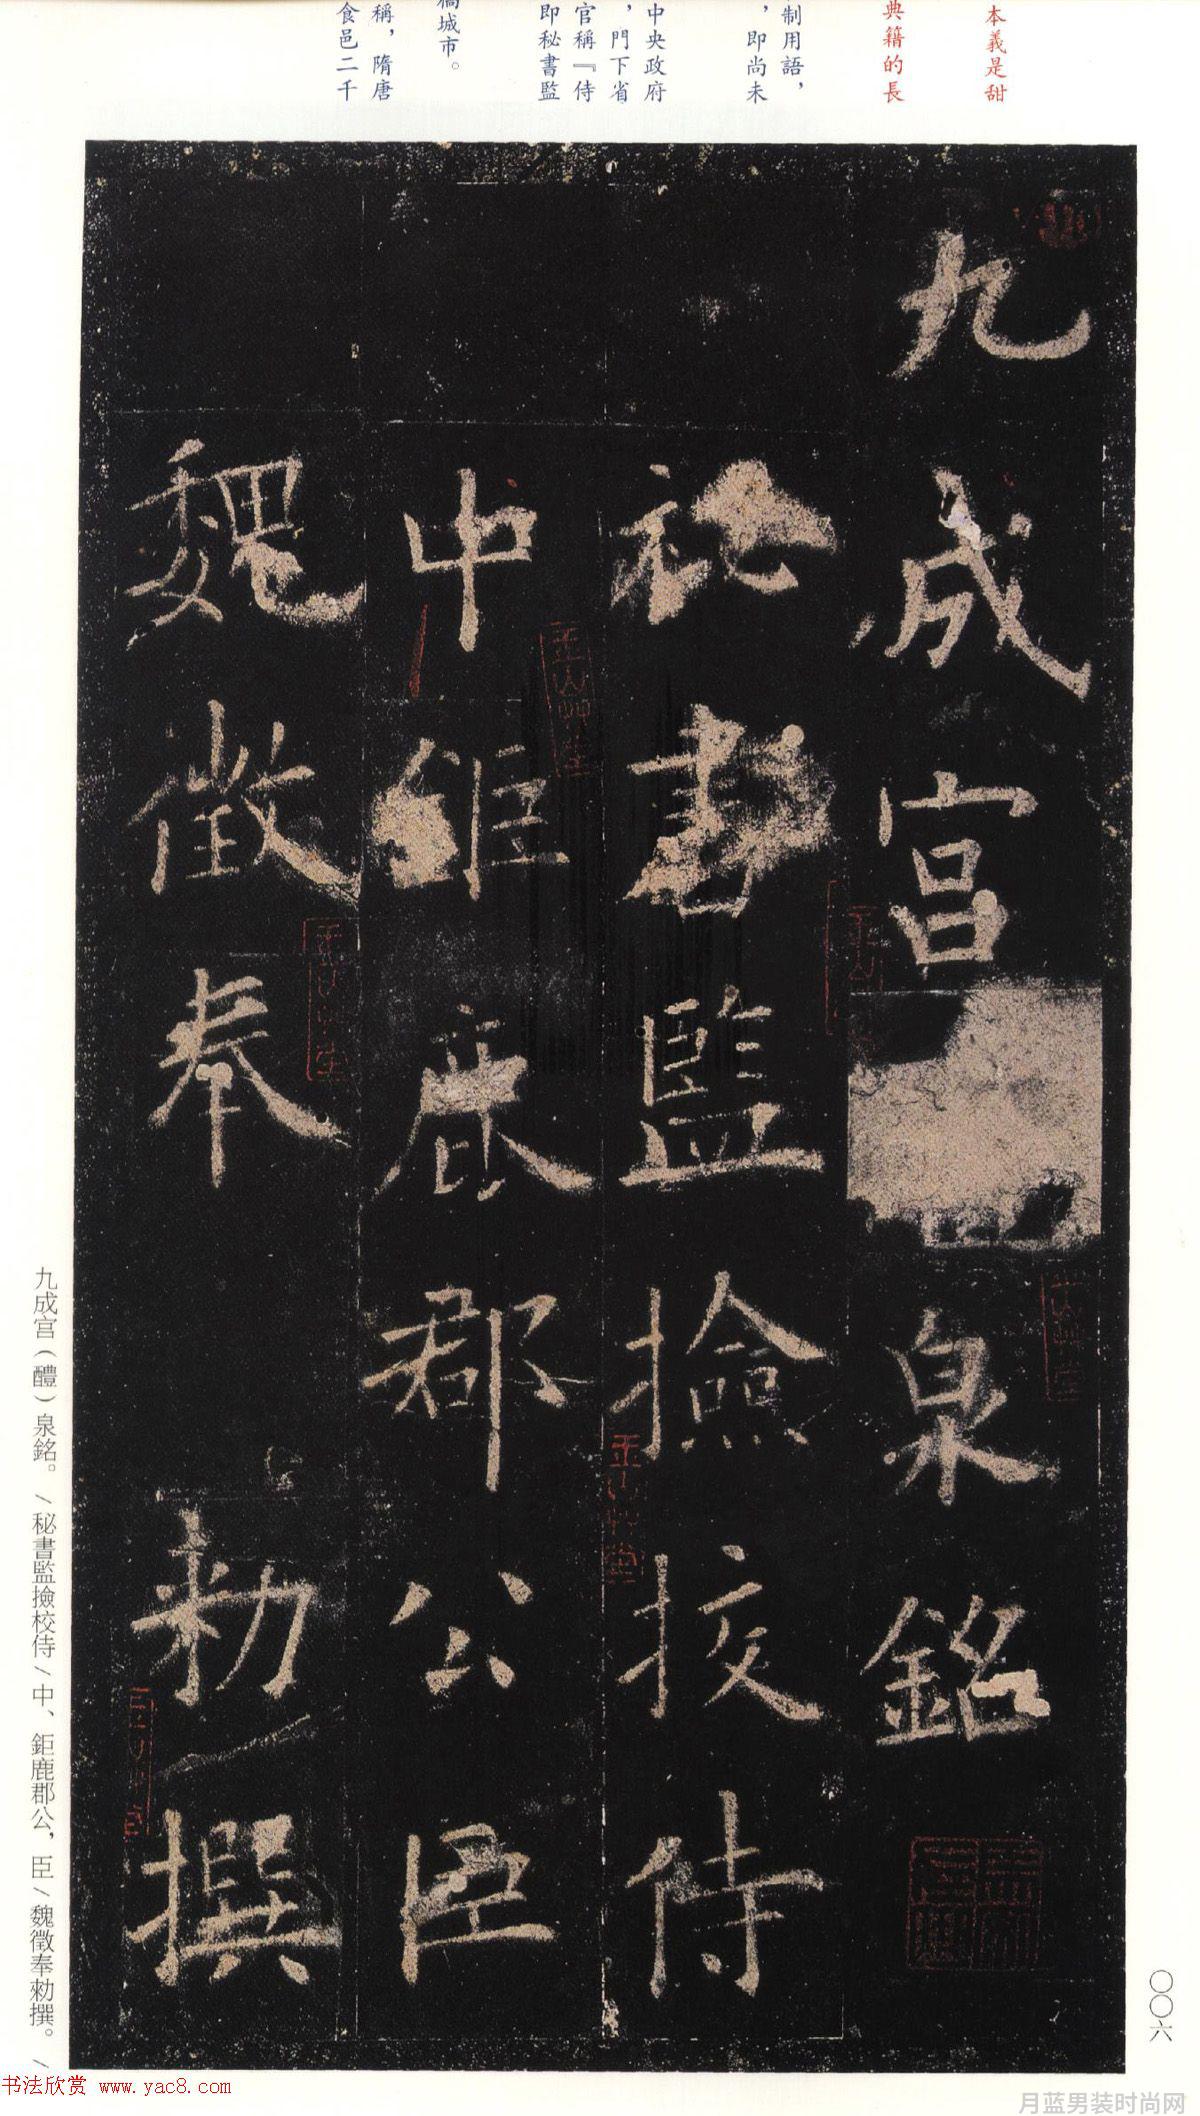 本義是甜
典籍的長
制用語，
，即尚未
中央政府
，門下省
官稱『侍
即秘書監
城市。
稱，隋唐
食邑二千
九成宮泉銘
祕書監撿挍侍
中鉅鹿郡公臣
魏徵奉
勑撰
九成宮（醴）泉銘。/秘書監撿校侍/中、鉅鹿郡公，臣/魏徵奉勑撰。/
〇〇六
书法欣赏 www.yac8.com
月蓝男装时尚网